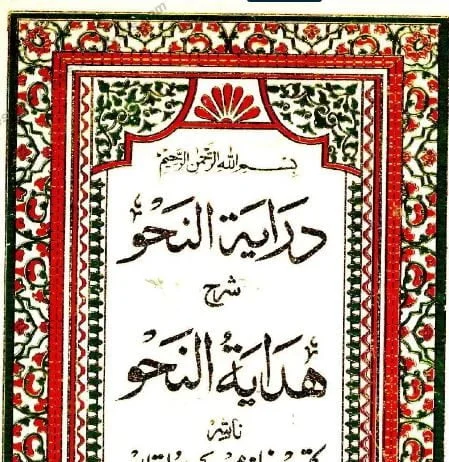 بسم الله الرحمن الرحيم
دراية النحو
شرح
هداية النحو
ناشر